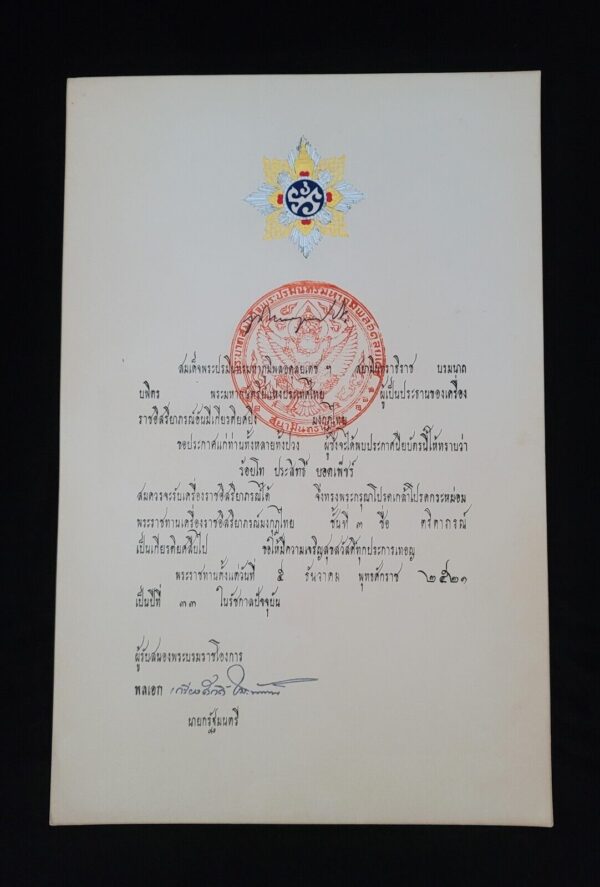 สมเด็จพระปรมินทรมหาภูมิพลอดุลยเดช ฯ สยามินทราธิราช บรมนาถ
บพิตร พระมหากษัตริย์แห่งประเทศไทย ผู้เป็นประธานของเครื่อง
ราชอิสริยาภรณ์อันมีเกียรติยศยิ่ง มงกุฎไทย
ขอประกาศแก่ท่านทั้งหลายทั้งปวง ผู้ซึ่งจะได้พบประกาศนียบัตรนี้ให้ทราบว่า
ร้อยโท ประสิทธิ์ ยอดเพ็ชร์
สมควรจะรับเครื่องราชอิสริยาภรณ์ได้ จึงทรงพระกรุณาโปรดเกล้าโปรดกระหม่อม
พระราชทานเครื่องราชอิสริยาภรณ์มงกุฎไทย ชั้นที่ ๓ ชื่อ ตริตาภรณ์
เป็นเกียรติยศสืบไป ขอให้มีความเจริญสุขสวัสดิ์ทุกประการเทอญ
พระราชทานตั้งแต่วันที่ ๕ ธันวาคม พุทธศักราช ๒๕๒๑
เป็นปีที่ ๓๓ ในรัชกาลปัจจุบัน
ผู้รับสนองพระบรมราชโองการ
พลเอก
นายกรัฐมนตรี